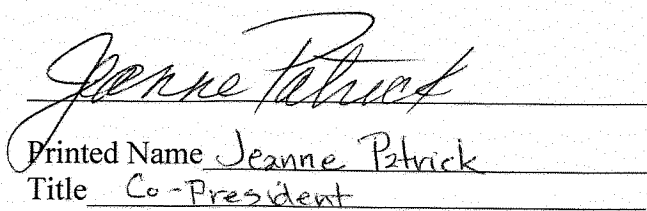 Jeanne Patrick
Printed Name Jeanne Patrick
Title Co-President